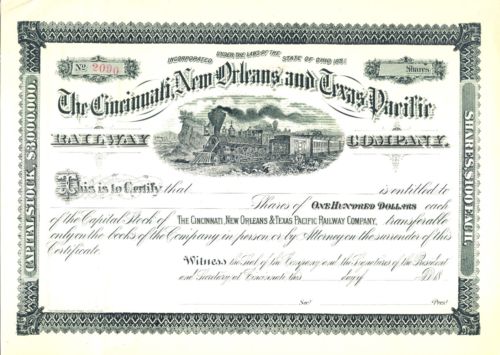 INCORPORATED UNDER THE LAWS OF THE STATE OF OHIO 1881
No. 2090
Shares
The Cincinnati, New Orleans and Texas Pacific
RAILWAY COMPANY.
CAPITAL STOCK, $3,000,000.
SHARES, $100 EACH.
This is to Certify that is entitled to
Shares of ONE HUNDRED DOLLARS each
of the Capital Stock of THE CINCINNATI, NEW ORLEANS & TEXAS PACIFIC RAILWAY COMPANY, transferable
only on the books of the Company in person or by Attorney on the surrender of this
Certificate.
Witness the Seal of the Company and the Signatures of the President
and Secretary at Cincinnati, this day of A.D. 18
Sec. Pres.